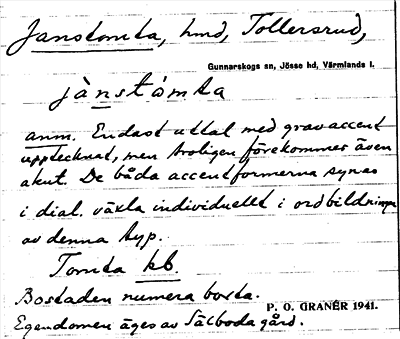 Janstomta, hmd, Tollersrud,
Gunnarskogs sn, Jösse hd, Värmlands l.
jànstòmta
anm. Endast uttal med gravaccent
upptecknat, men troligen förekommer även
akut. De båda accentformerna synas
i dial. växla individuellt i ordbildningar
av denna typ.
Tomta kb.
Bostaden numera borta.
P. O. GRANÉR 1941.
Egendomen äges av Sälboda gård.